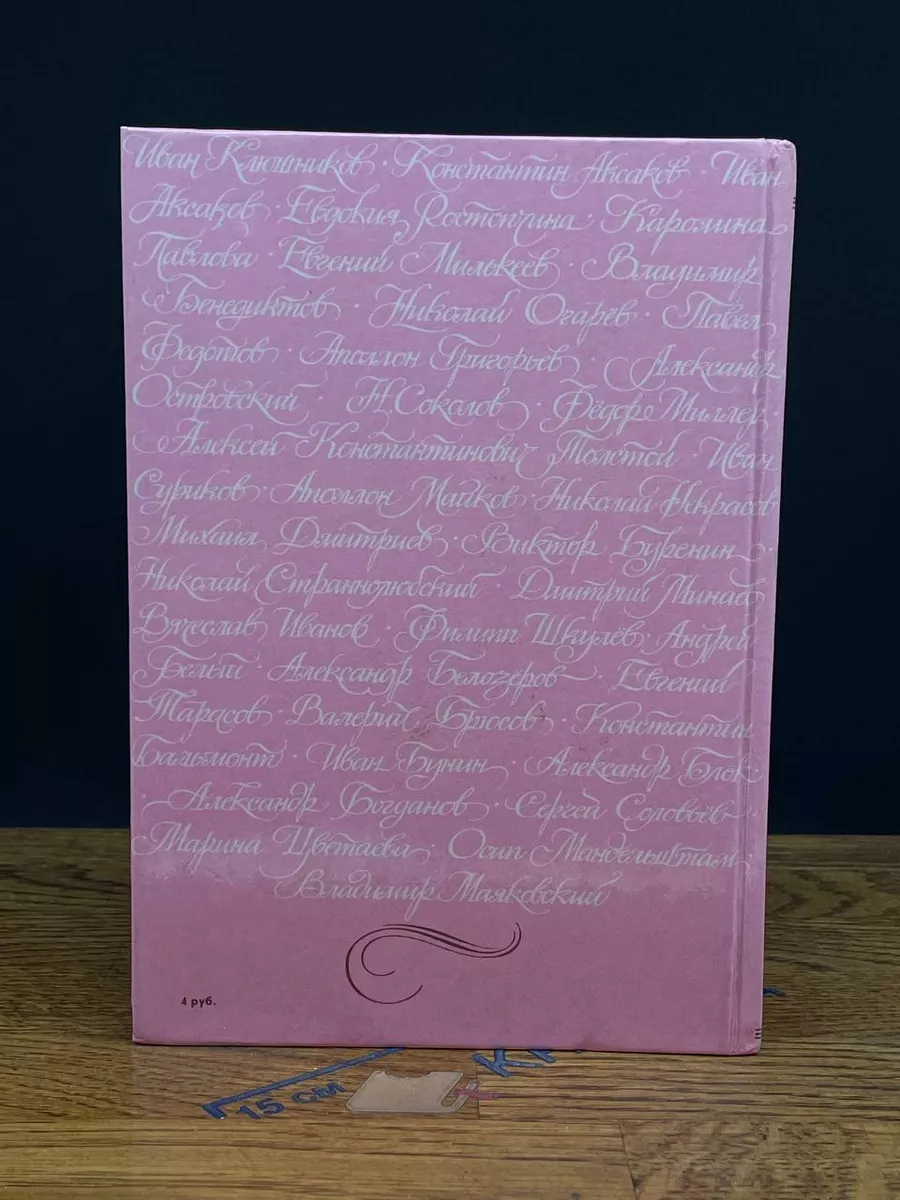 Иван Клюшников · Константин Аксаков · Иван
Аксаков · Евдокия Ростопчина · Каролина
Павлова · Евгений Милькеев · Владимир
Бенедиктов · Николай Огарёв · Павел
Федотов · Аполлон Григорьев · Александр
Островский · Н. Соколов · Фёдор Миллер ·
Алексей Константинович Толстой · Иван
Суриков · Аполлон Майков · Николай Некрасов
Михаил Дмитриев · Виктор Буренин ·
Николай Страннолюбский · Дмитрий Минаев
Вячеслав Иванов · Филипп Шкулёв · Андрей
Белый · Александр Белозёров · Евгений
Тарасов · Валерий Брюсов · Константин
Бальмонт · Иван Бунин · Александр Блок ·
Александр Богданов · Сергей Соловьёв
Марина Цветаева · Осип Мандельштам ·
Владимир Маяковский
4 руб.
15 см